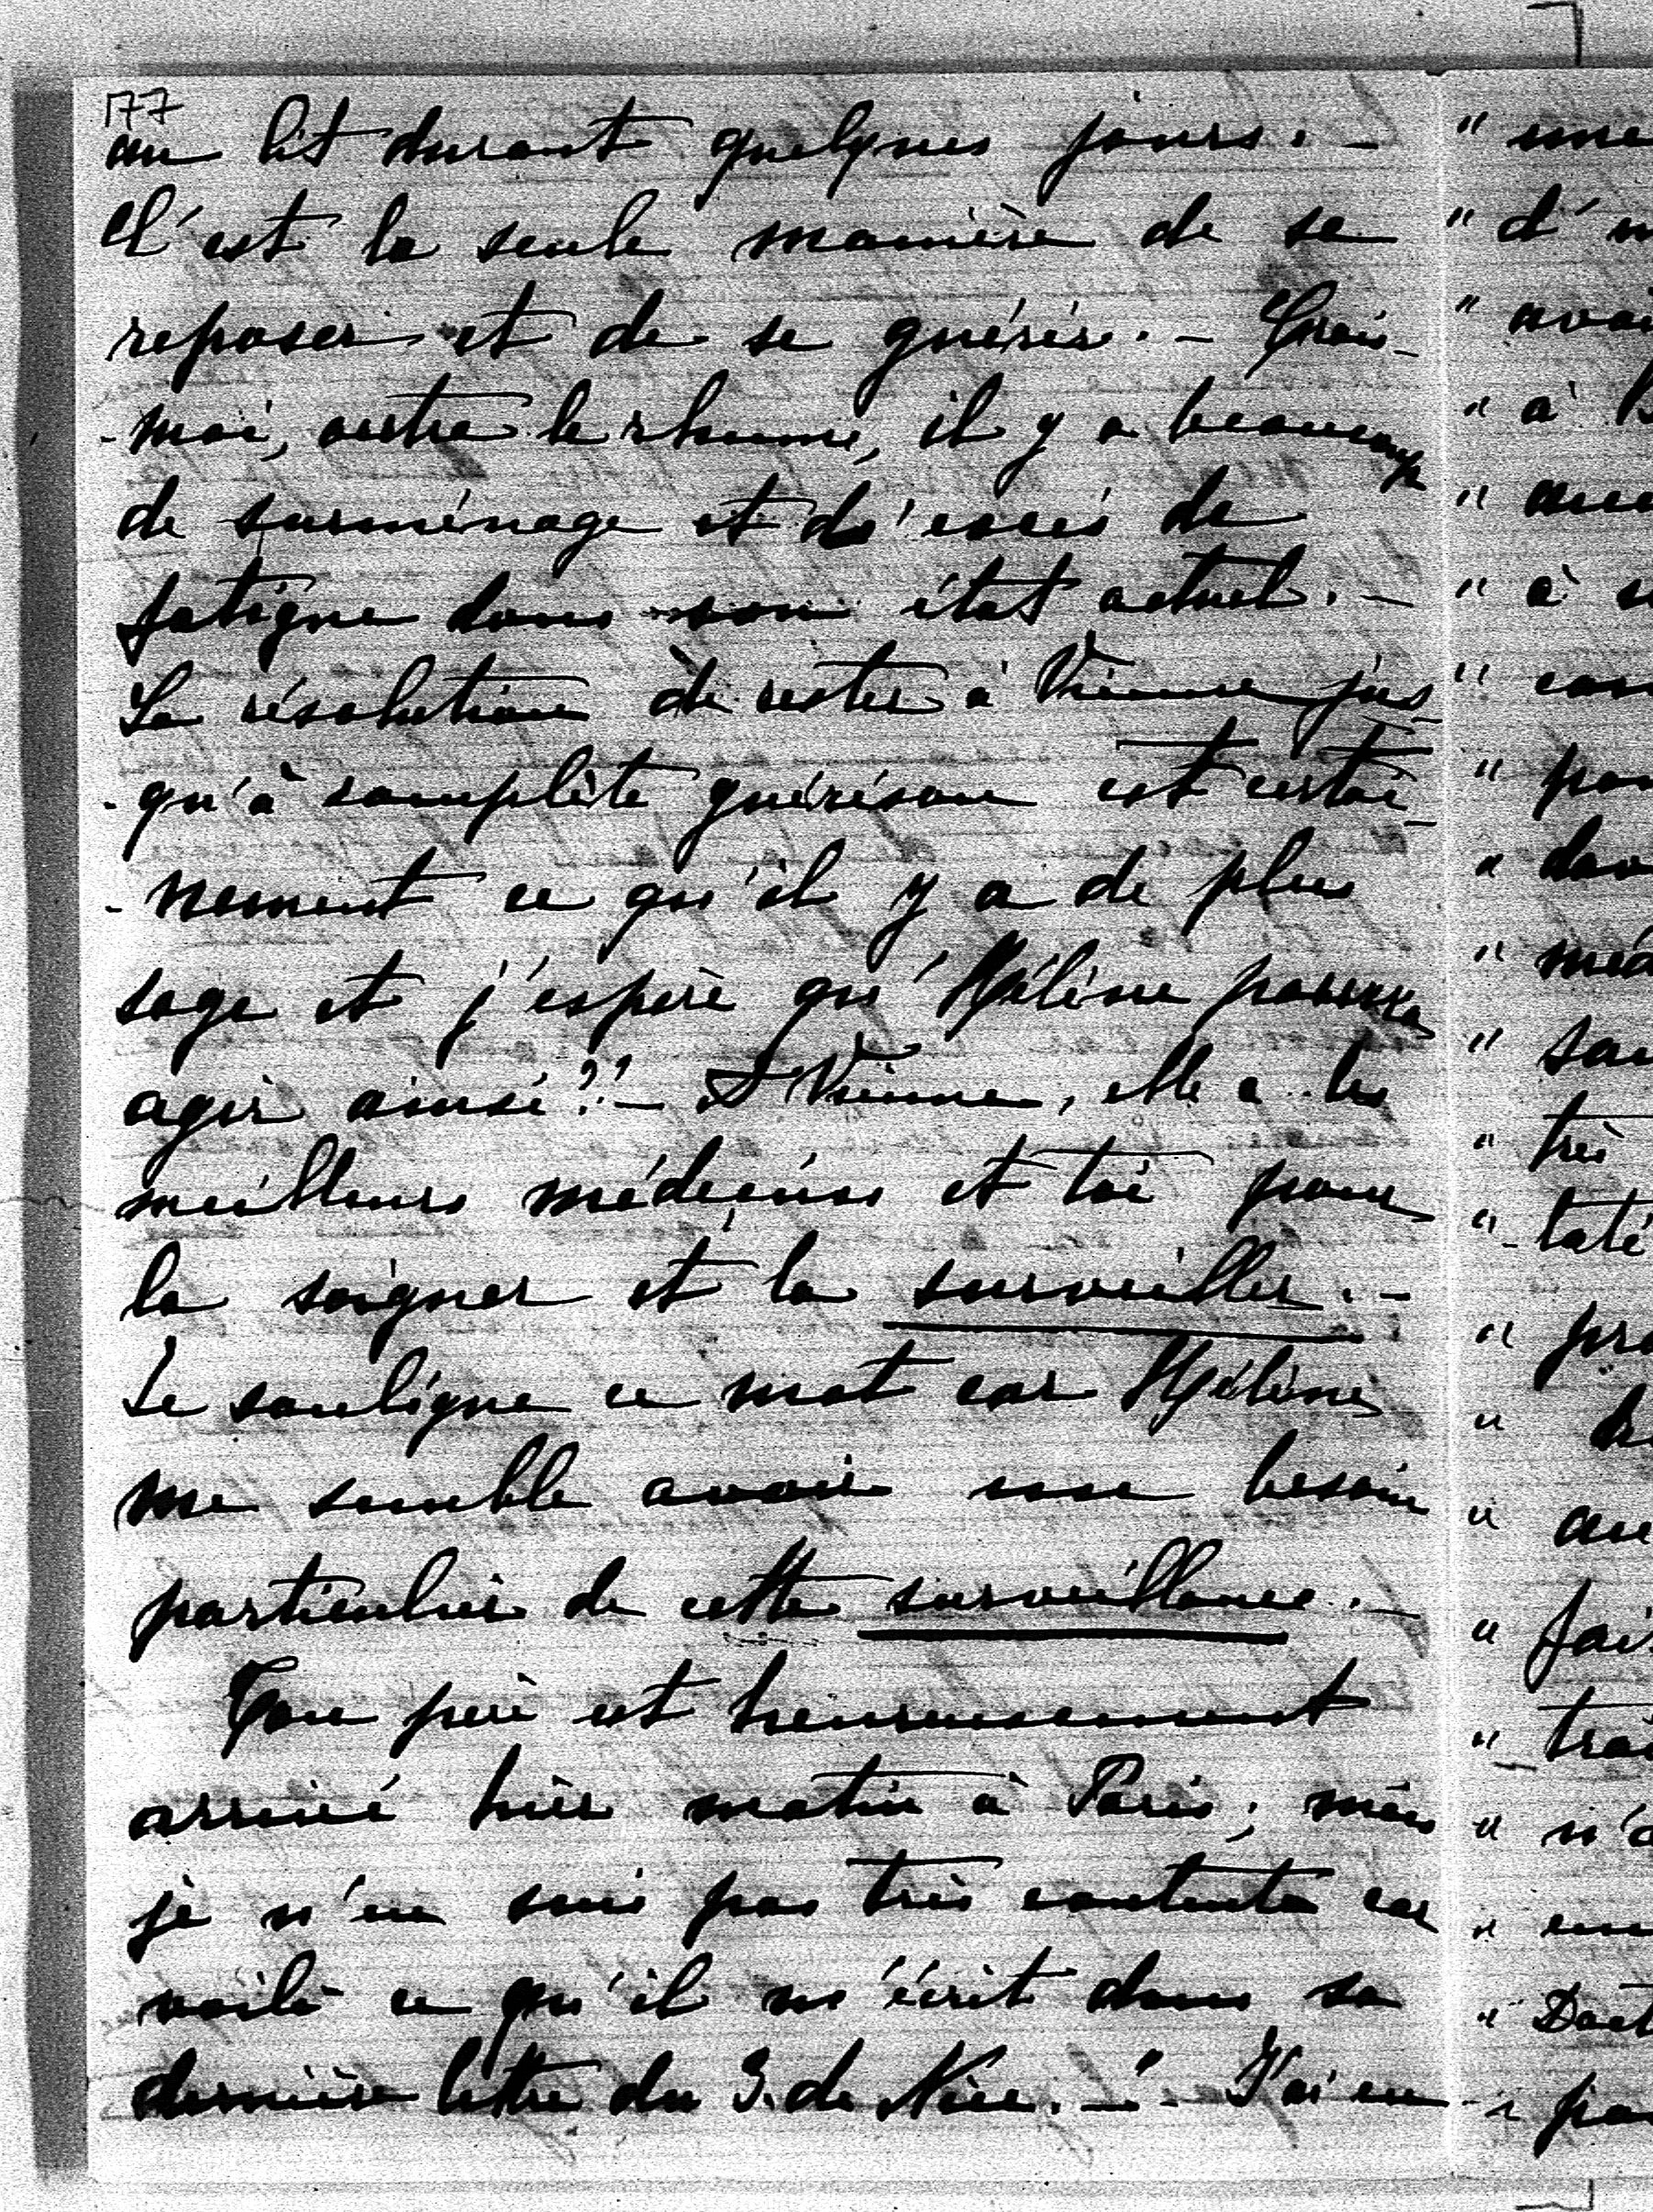 177
au lit durant quelques jours. -
C'est la seule manière de se
reposer et de se guérir. - Crois-
-moi, outre le rhume, il y a beaucoup
de surménage et d'excès de
fatigue dans son état actuel. -
La résolution de rester à Vienne jus-
-qu'à complète guérison est certai-
-nement ce qu'il y a de plus
sage et j'espère qu'Hélène pourra
agir ainsi?! - A Vienne, elle a les
meilleurs médecins et toi pour
la soigner et la surveiller. -
Je souligne ce mot car Hélène
me semble avoir un besoin
particulier de cette surveillance. -
Ton père est heureusement
arrivé hier matin à Paris; mais
je n'en suis pas très contente car
voilà ce qu'il m'écrit dans sa
dernière lettre du 3. de Nice. - " - J'ai eu
" une
" d'
" à
" à
" très
" n'a